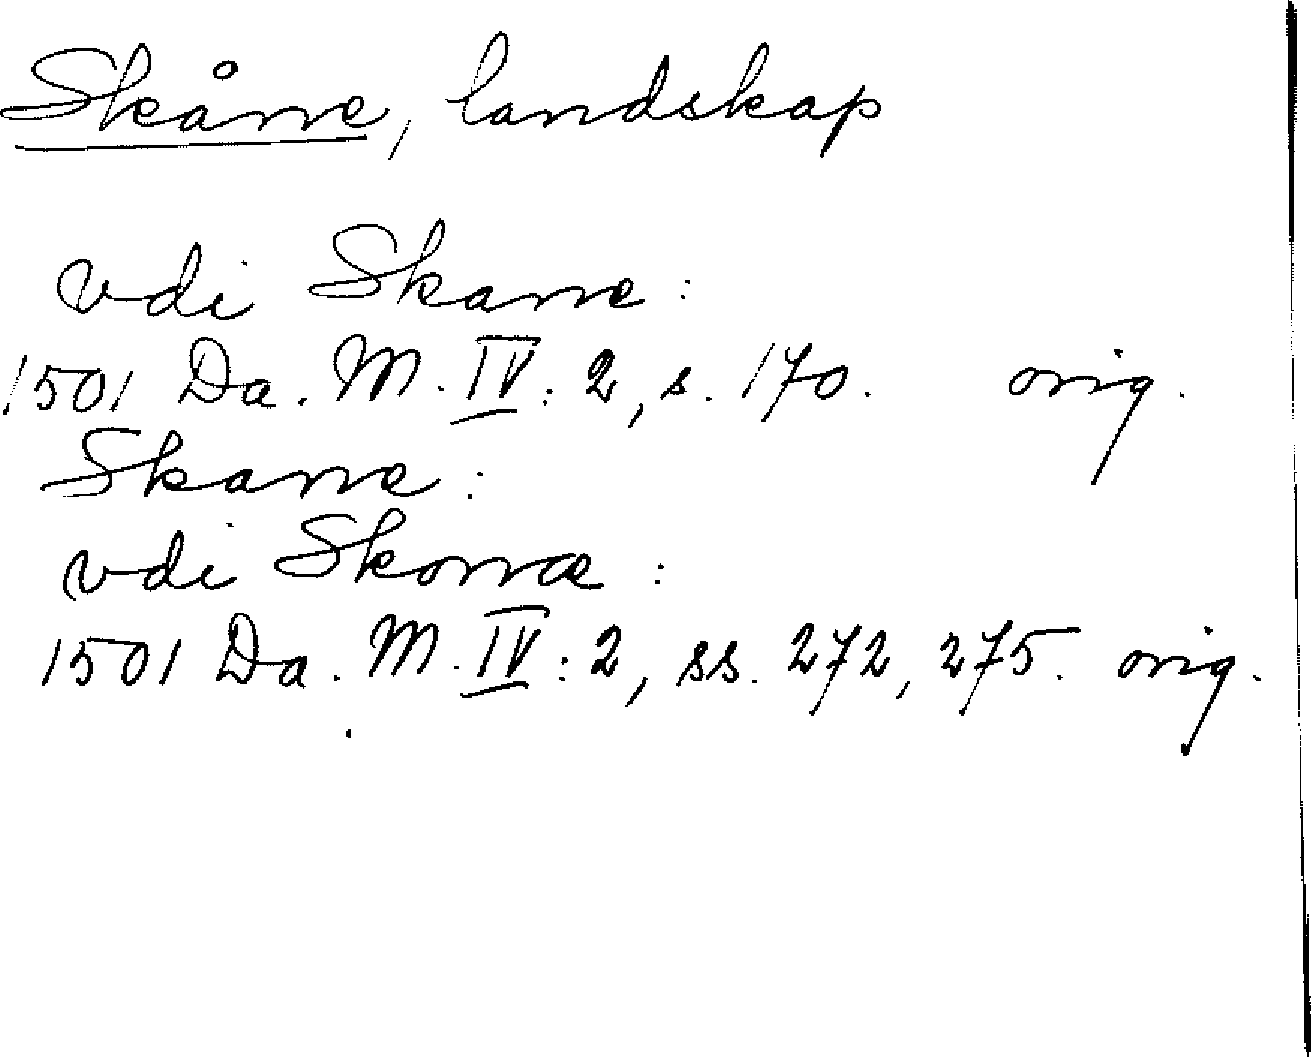 Skåne, landskap
vdi Skane:
1501 Da. M. IV: 2, s. 170. orig.
Skane:
vdi Skonæ:
1501 Da. M. IV: 2, ss. 272, 275. orig.